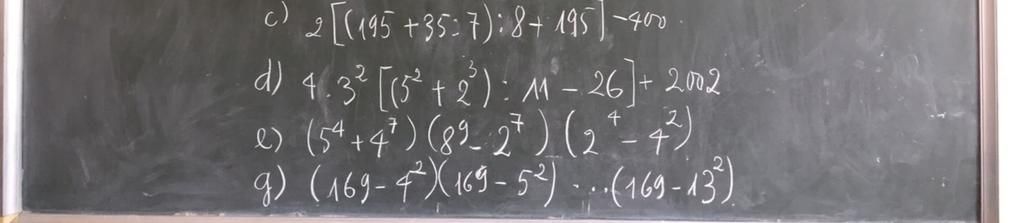 c) 2[(195 + 35 : 7) : 8 + 195] - 400.
d) 4 . 3² [(5² + 2³) : 11 - 26] + 2002
e) (5⁴ + 4⁷) (8⁹ - 2⁷) (2⁴ - 4²)
g) (169 - 4²)(169 - 5²) ... (169 - 13²)